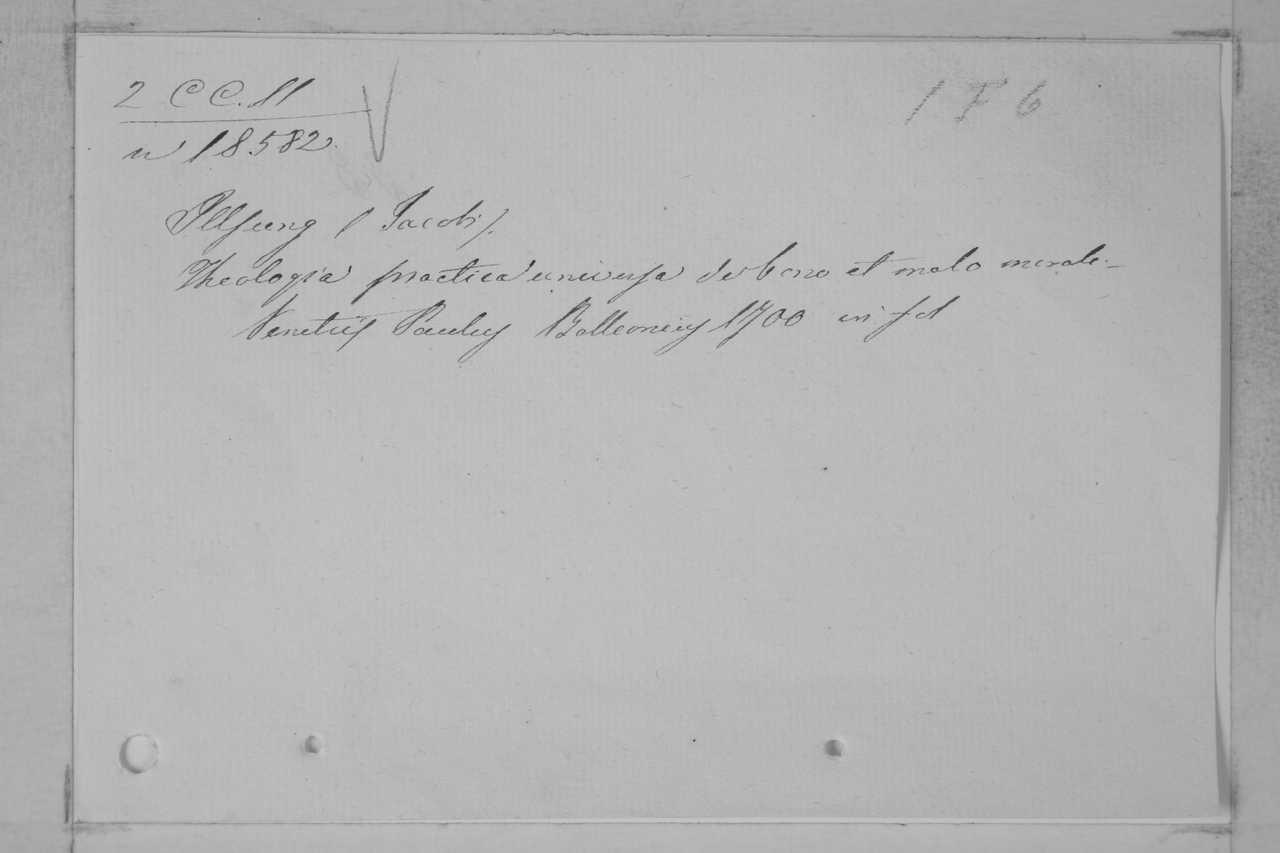 2 CC. 11
1 F 6
n 18582.
Illsung (Jacob).
Theologia practica universa de bono et malo morali.
Venetiis Paulus Balleonius 1700 in fol